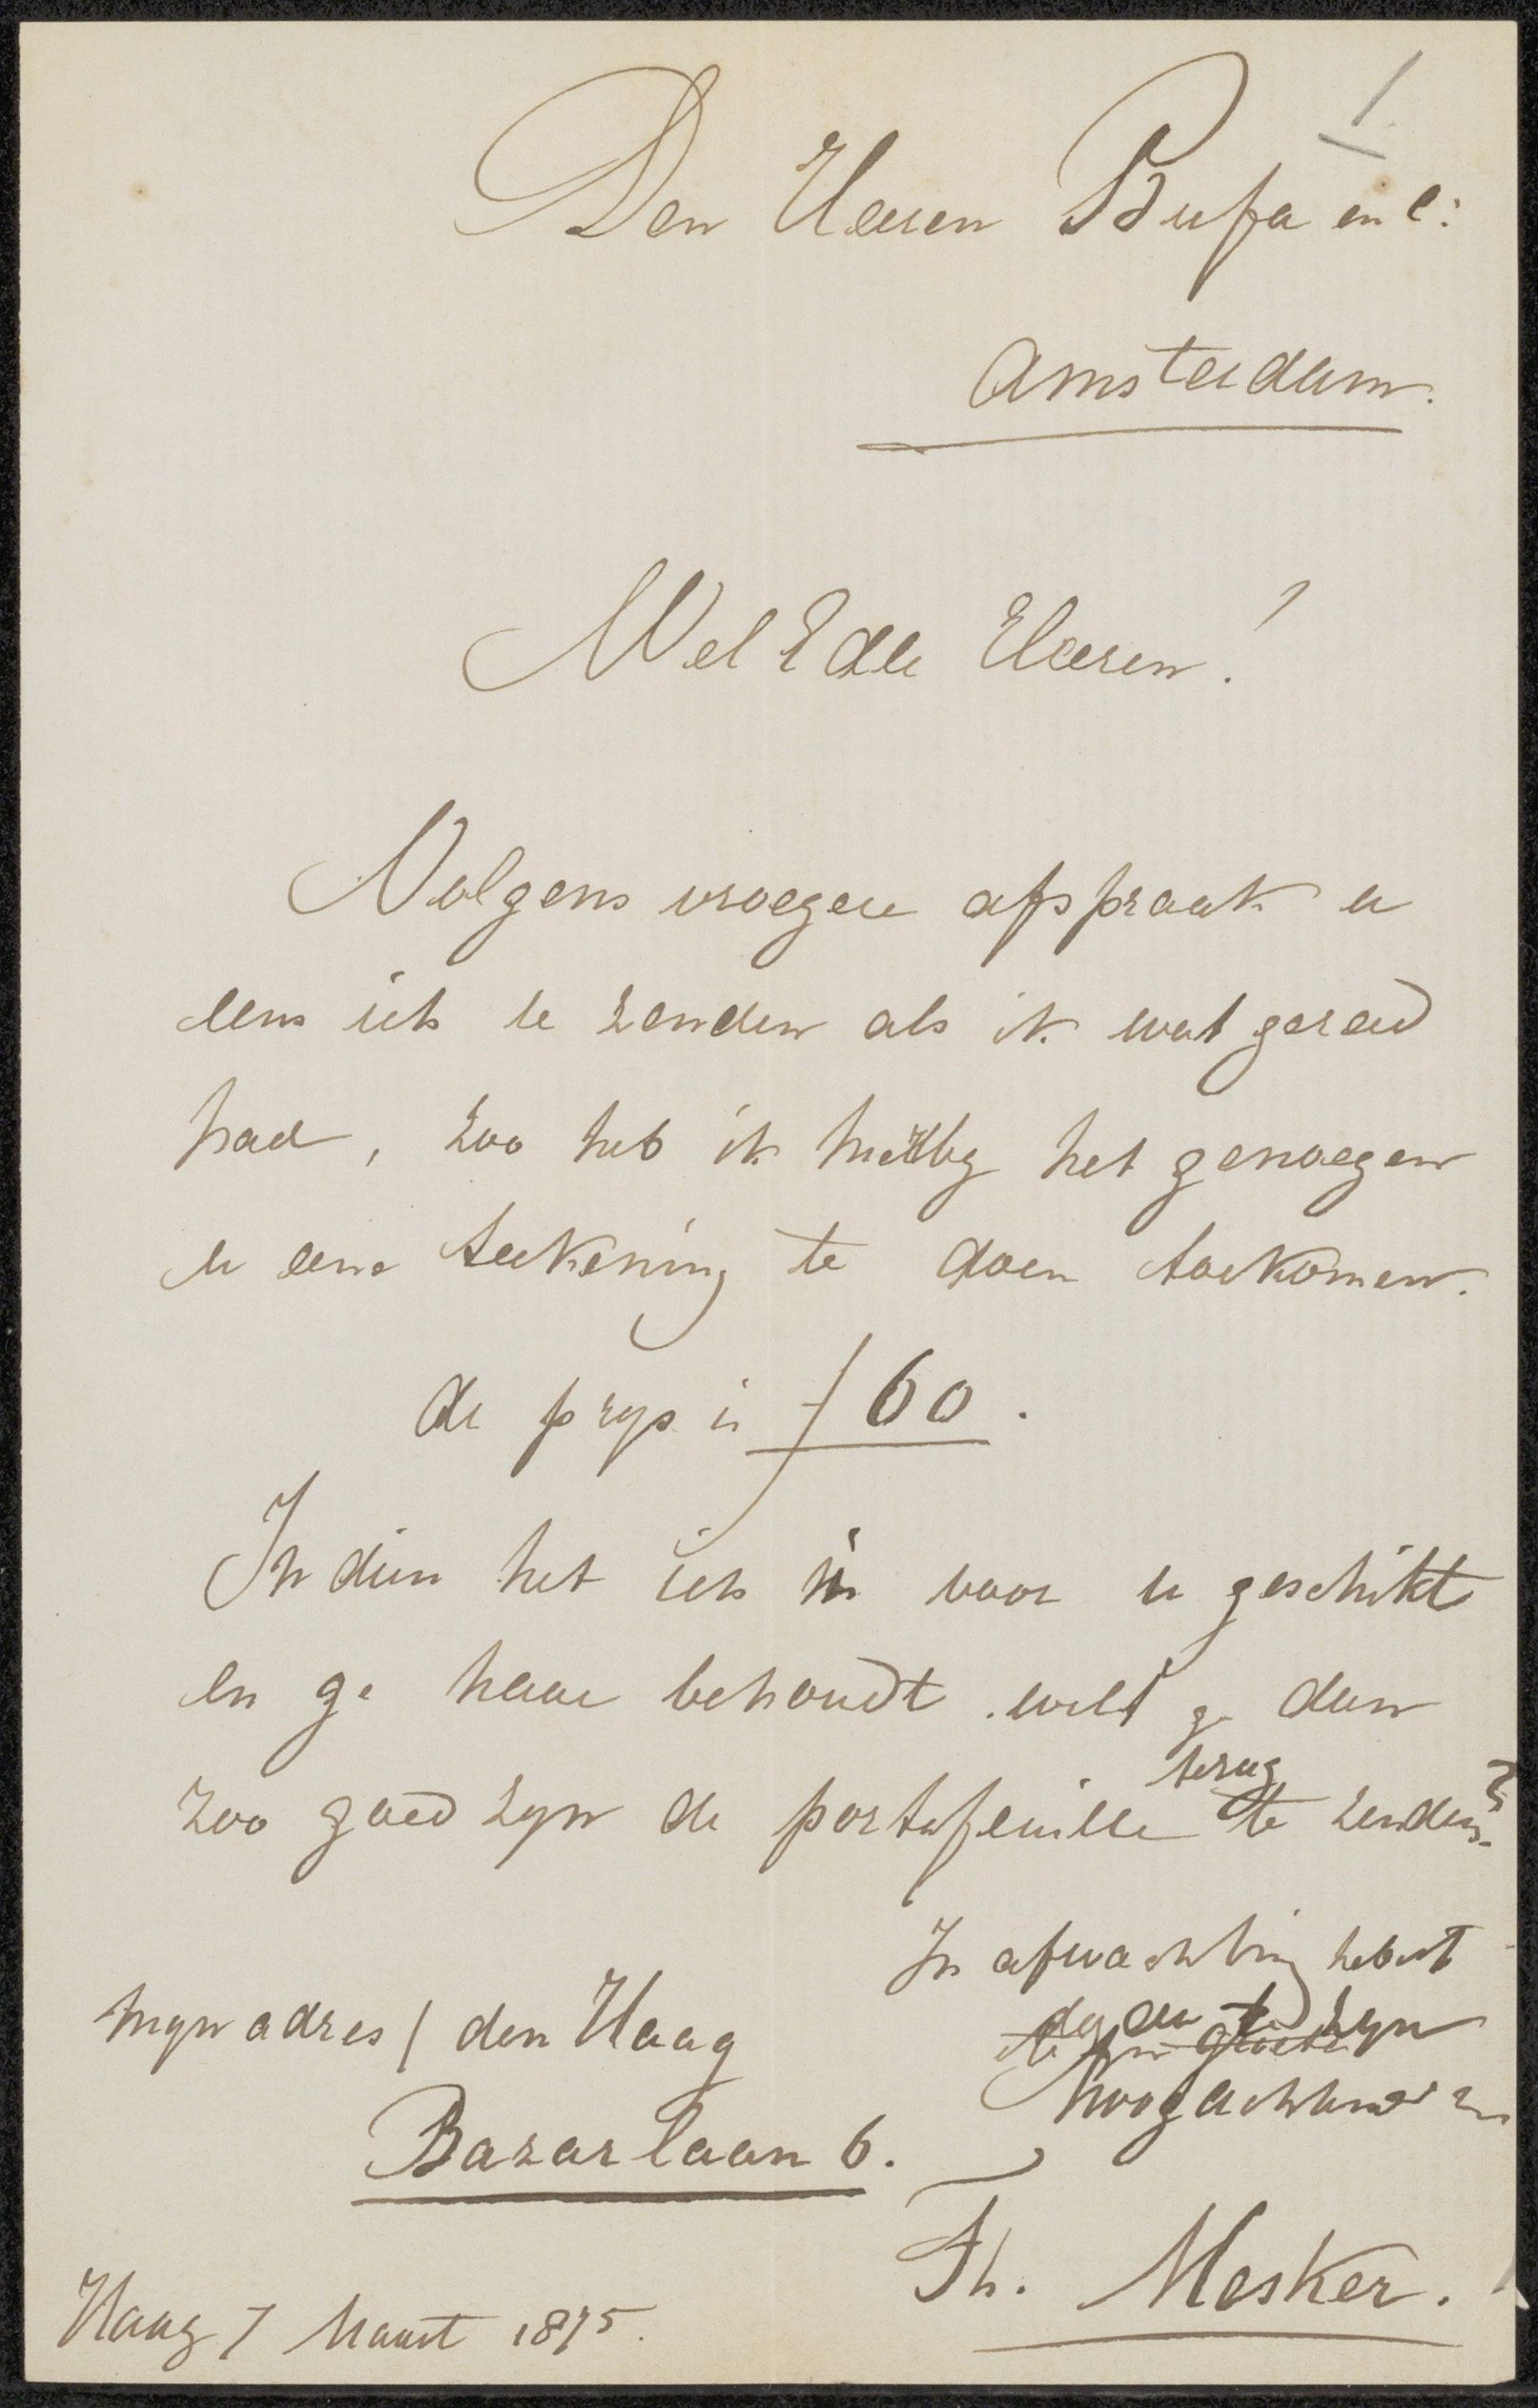 1
Den Heeren Buffa en C:
Amsterdam.
Wel Edle Heeren!
Volgens vroegere afspraak u
eens iets te zenden als ik wat gereed
had, zoo heb ik hierbij het genoegen
u eene teekening te doen toekomen.
de prijs is f 60.
Indien het iets is voor u geschikt
en ge haar behoudt. wilt ge dan
zoo goed zijn de portefeuille terug te zenden?
In afwachting heb ik
de eer te zijn
hoogachtend
mijn adres / den Haag
Bazarlaan 6.
Th. Mesker.
Haag 7 Maart 1875.